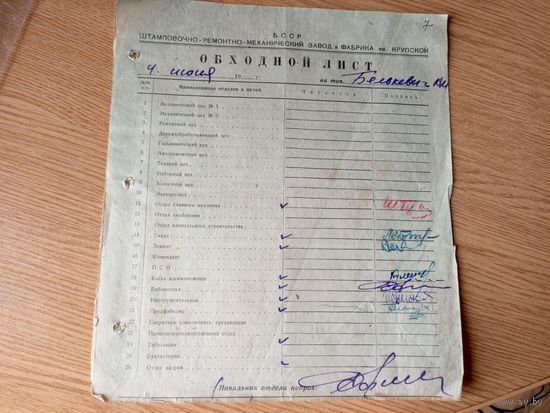 7
БССР
ШТАМПОВОЧНО-РЕМОНТНО-МЕХАНИЧЕСКИЙ ЗАВОД и ФАБРИКА им. КРУПСКОЙ
ОБХОДНОЙ ЛИСТ
4 июня 19 г. на тов. Белькевич
№№ п.п. Наименование отделов и цехов Числится Подпись
1 Механический цех № 1
2 Механический цех № 2
3 Ремонтный цех
4 Деревообрабатывающий цех
5 Гальванический цех
6 Авторемонтный цех
7 Ткацкий цех
8 Наборный цех
9 Волосяной цех
10 Электро-цех
11 Отдел главного механика
12 Отдел снабжения
13 Отдел капитального строительства
14 Склад
15 Завхоз
16 Комендант
17 ПСО
18 Касса взаимопомощи
19 Библиотека
20 Инструментальная
21 Профработа
22 Секретарь комсомольск. организации
23 Планово-производственный отдел
24 Табельщик
25 Бухгалтерия
26 Отдел кадров
Начальник отдела кадров:
www.ay.by